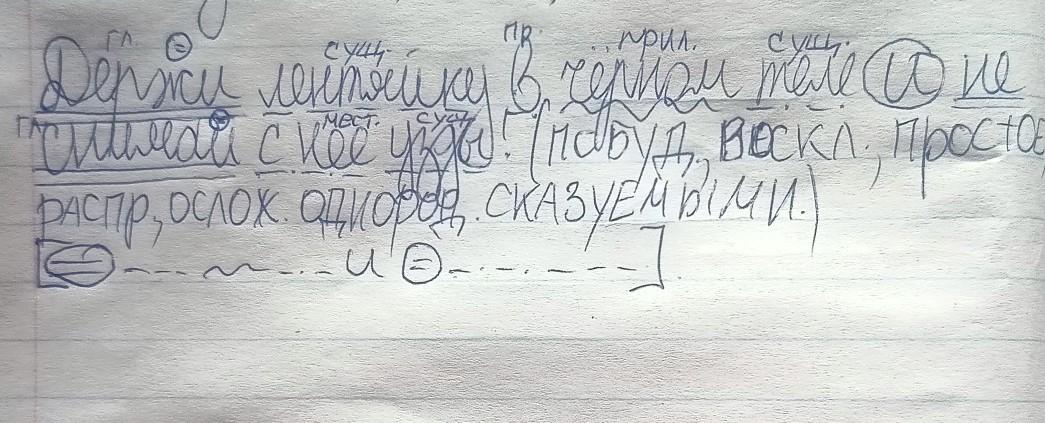 гл. сущ. пр. прил. сущ.
Держи лентяйку в чёрном теле и не
гл. мест. сущ.
снимай с неё узды! (побуд., воскл., простое,
распр., ослож. однород. сказуемыми.)
и